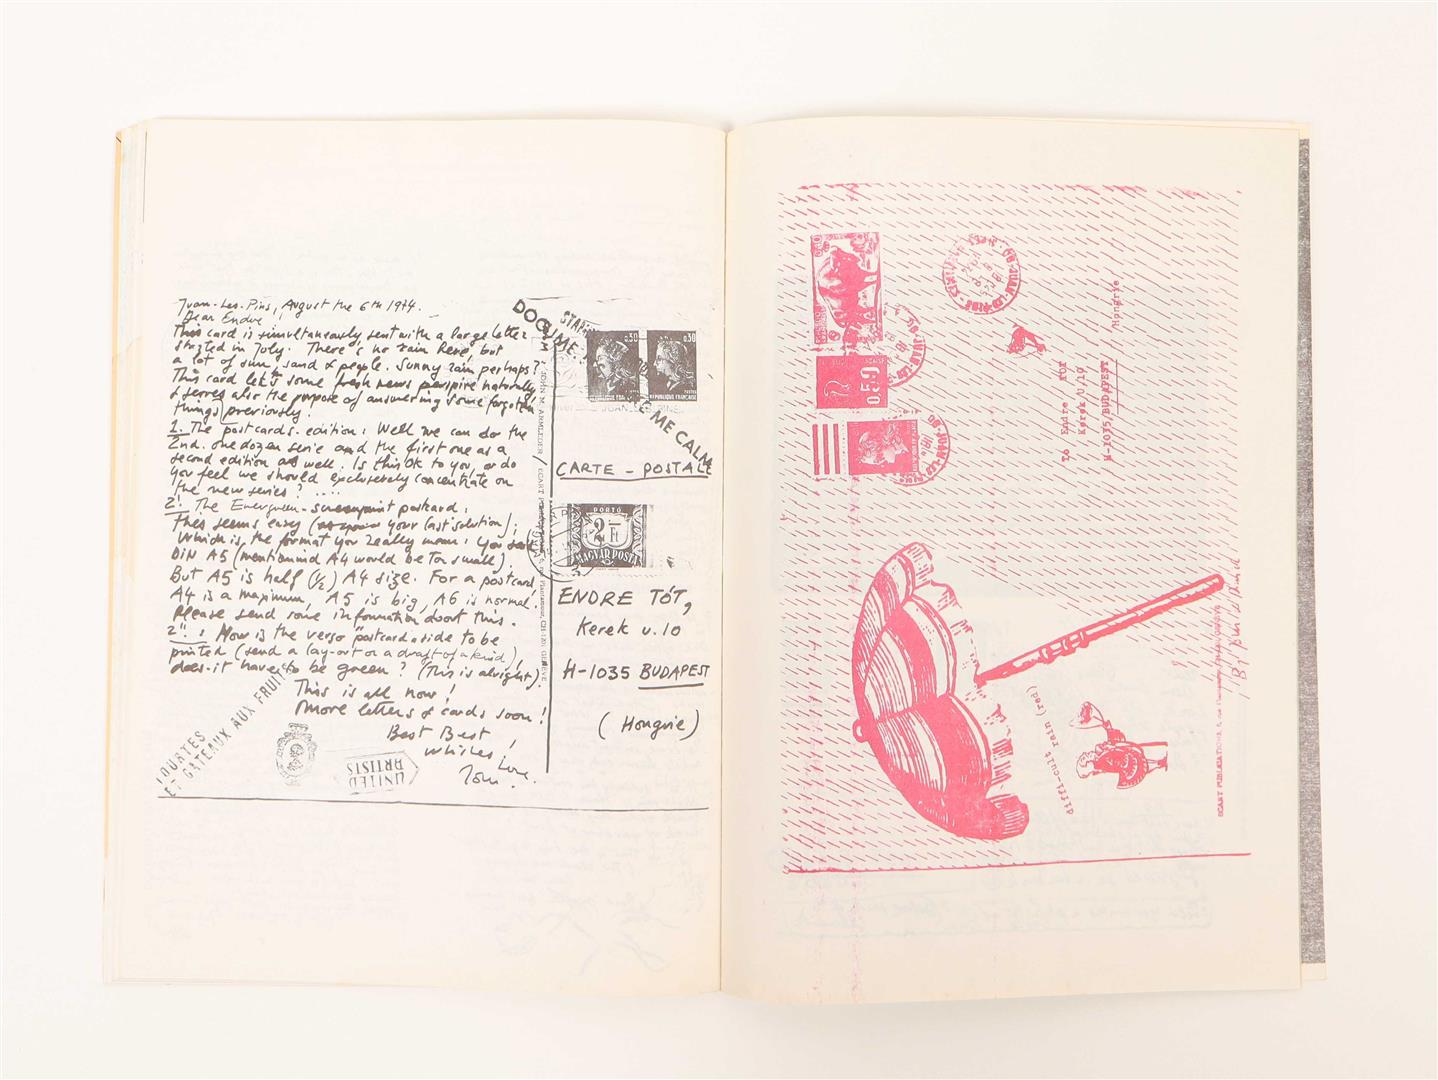 Juan-Les-Pins, August the 6th 1974.
Dear Endre
This card is simultaneously sent with a large letter
started in July. There's no rain here, but
a lot of sun, sand & people. Sunny rain perhaps?
This card let's some fresh news perspire naturally
& serves also the purpose of answering some forgotten
things previously.
1. The postcards-edition: Well we can do the
2nd. one dozen serie and the first one as a
second edition as well. Is this OK to you, or do
you feel we should exclusively concentrate on
the new series? ....
2'. The Evergreen-screenprint postcard:
This seems easy (your last solution);
Which is the format you really mean: You said
DIN A5 (mentioning A4 would be too small).
But A5 is half (½) A4 size. For a postcard
A4 is a maximum, A5 is big, A6 is normal.
Please send some information about this.
2''. : How is the verso "postcard" side to be
printed (send a lay-out or a draft of a kind),
does-it have to be green? (This is alright).
This is all now!
More letters & cards soon!
Best Best
Wishes!
Love.
John.
TOURTES
ET GATEAUX AUX FRUITS
UNITED
ARTISTS
JOHN M. ARMLEDER / ECART
GENEVE.
0.30
0.30
REPUBLIQUE FRANÇAISE
REPUBLIQUE FRANÇAISE
ME CALM
CARTE-POSTALE
PORTÓ
2 Ft
MAGYAR POSTA
ENDRE TÓT,
Kerek u.10
H-1035 BUDAPEST
(Hongrie)
JUAN-LES-PINS
0.50
To Endre TÓT
Kerek.U/10
H-1035/BUDAPEST
/Hongrie
diffi-cult rain (red)
ECART PUBLICATIONS